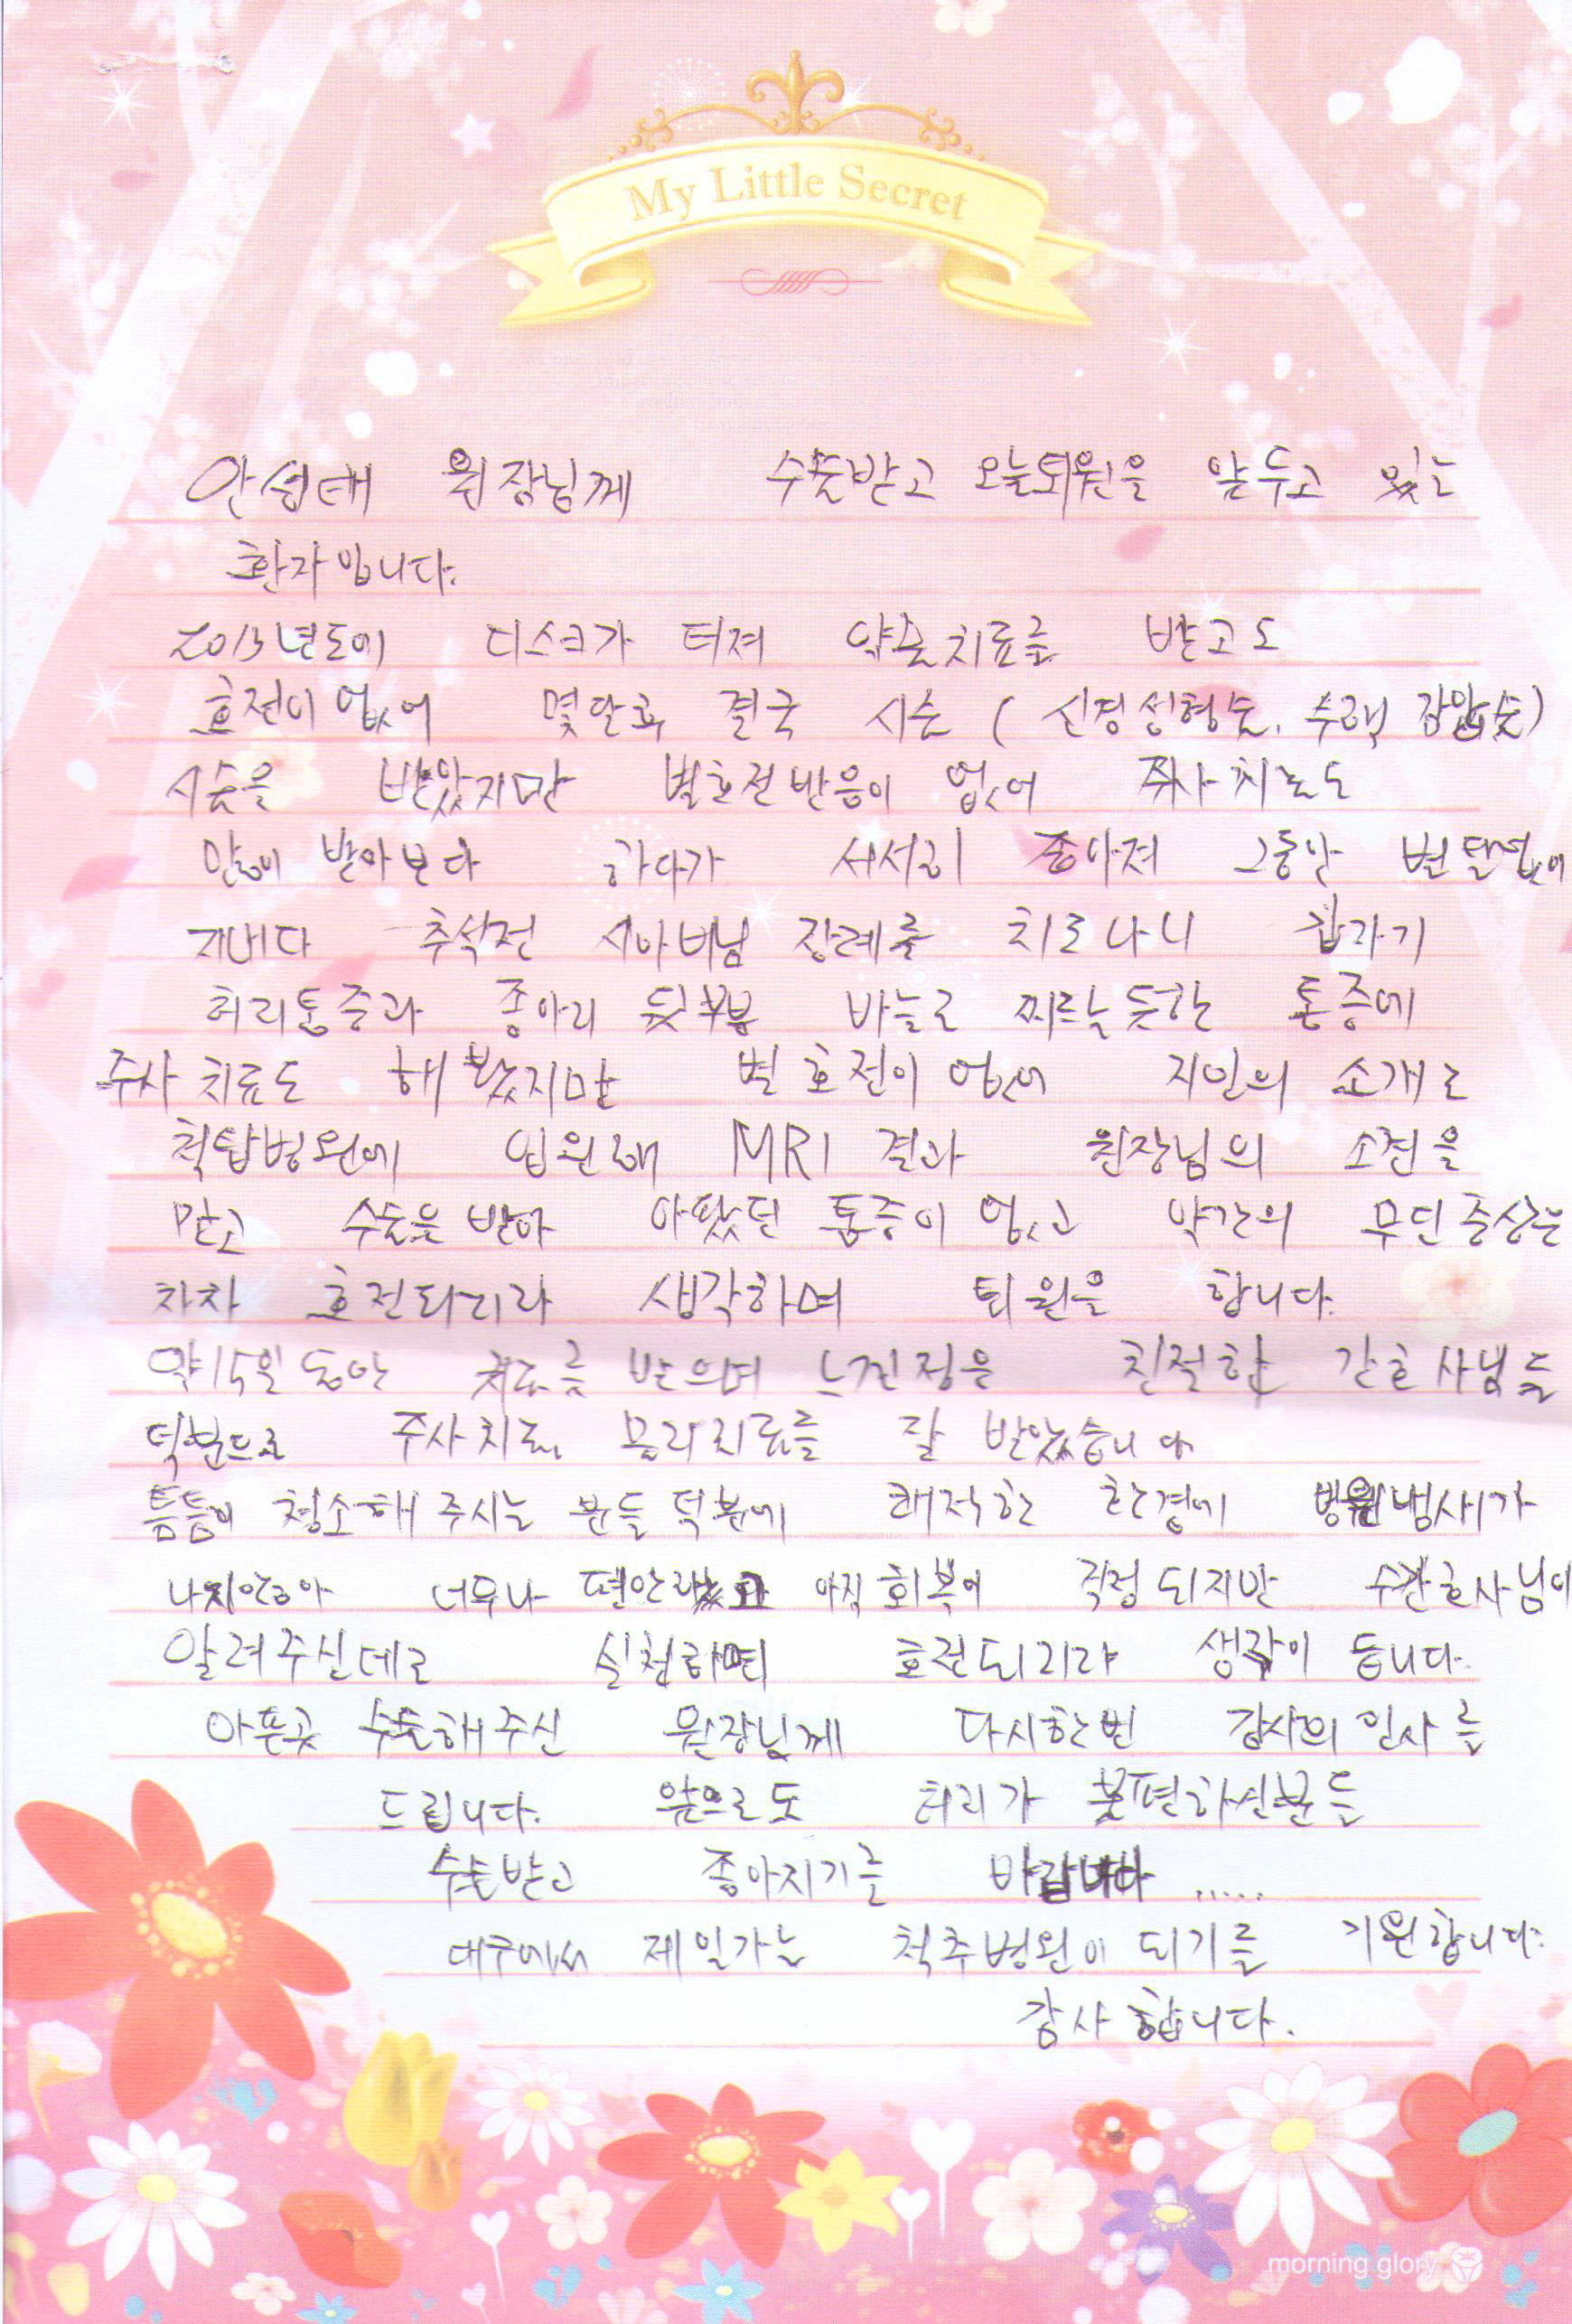 My Little Secret
안성태 원장님께 수술받고 오늘퇴원을 앞두고 있는
환자입니다.
2013년도에 디스크가 터져 약물치료를 받고도
호전이 없어 몇달후 결국 시술 ( 신경성형술, 수핵 감압술)
시술을 받았지만 별호전반응이 없어 주사치료도
많이 받아보다 하다가 서서히 좋아져 그동안 별탈없이
지내다 추석전 시아버님 장례를 치르나니 갑자기
허리통증과 종아리 뒷부분 바늘로 찌르는듯한 통증에
주사치료도 해봤지만 별호전이 없어 지인의 소개로
척탑병원에 입원해 MRI 결과 원장님의 소견을
믿고 수술을 받아 아팠던 통증이 없고 약간의 무딘증상은
차차 호전되리라 생각하며 퇴원을 합니다.
약15일동안 치료를 받으며 느낀점은 친절한 간호사님들
덕분으로 주사치료, 물리치료를 잘 받았습니다
틈틈이 청소해주시는 분들덕분에 쾌적한 환경에 병원냄새가
나지않아 너무나 편안했고 아직 회복이 걱정되지만 수간호사님이
알려주신데로 실천하면 호전되리라 생각이 듭니다.
아픈곳 수술해주신 원장님께 다시한번 감사의 인사를
드립니다. 앞으로도 허리가 불편하신분들
수술받고 좋아지기를 바랍니다 .....
대구에서 제일가는 척추병원이 되기를 기원합니다.
감사합니다.
morning glory